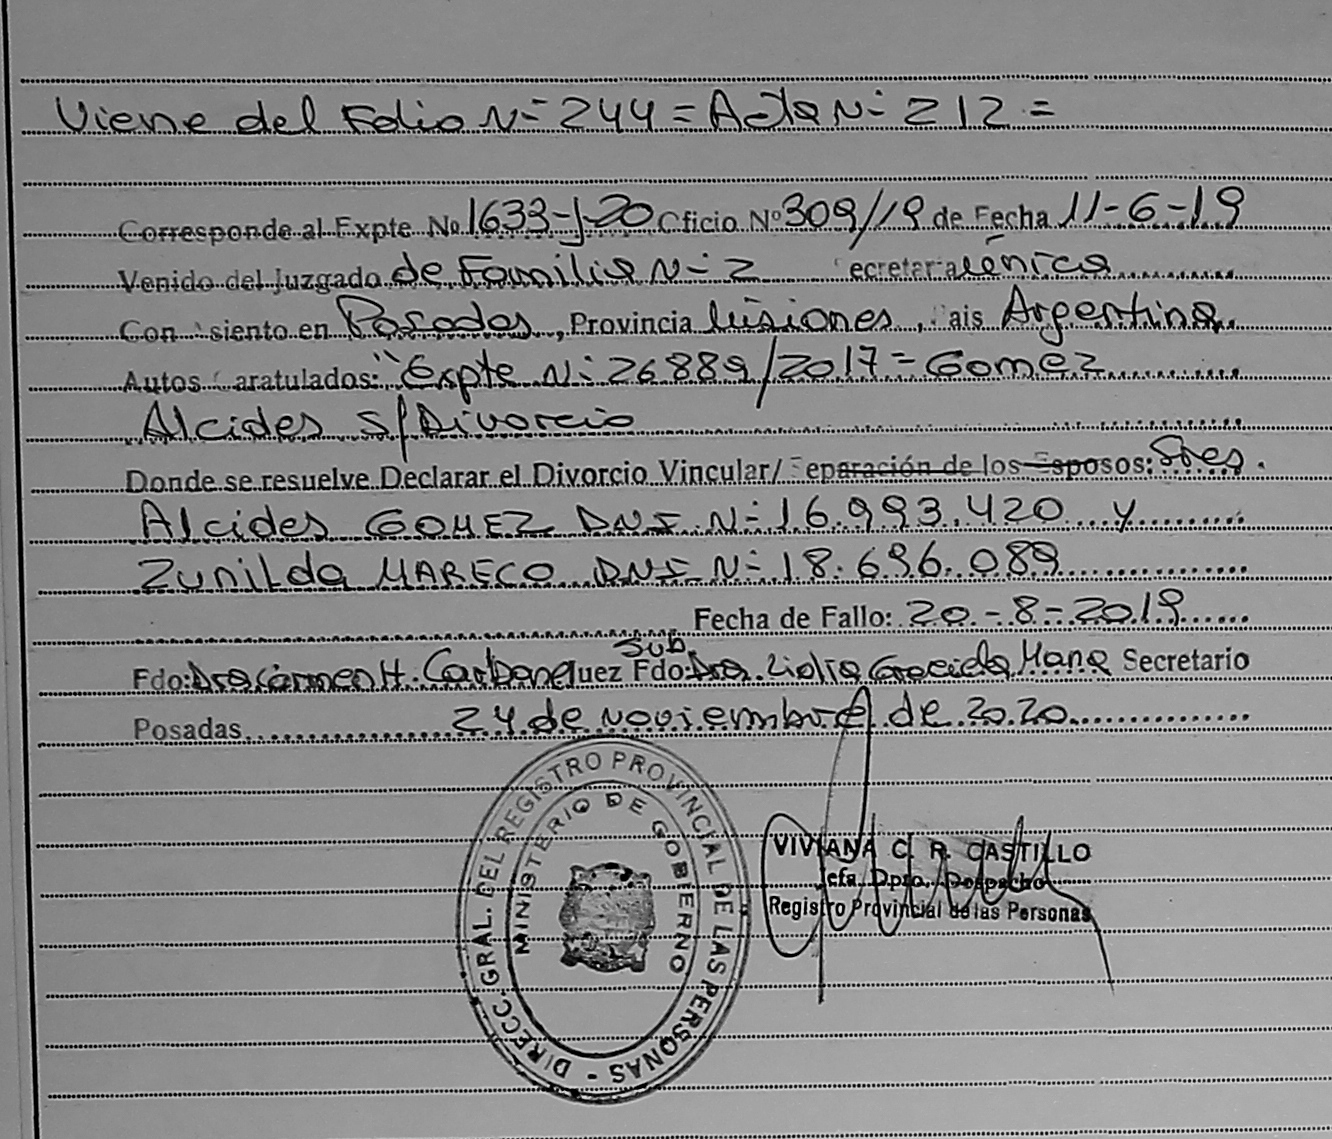 Viene del Folio Nº 244 = Acta Nº 212 =
Corresponde al Expte Nº 1633-J-20 Oficio Nº 309/19 de Fecha 11-6-19
Venido del Juzgado de Familia Nº 2 Secretaria Única
Con asiento en Posadas, Provincia Misiones, Pais Argentina.
Autos Caratulados: "Expte Nº 26889/2017 = Gomez
Alcides S/Divorcio
Donde se resuelve Declarar el Divorcio Vincular/ Separación de los Esposos: Sres.
Alcides GOMEZ DNI Nº 16.993.420 y
Zunilda MARECO DNI Nº 18.696.089
Fecha de Fallo: 20-8-2019
Sub
Fdo: Dra Carmen H. Juez Fdo: Dra. Graciela Secretario
Posadas 24 de Noviembre de 2020
DIRECC. GRAL. DEL REGISTRO PROVINCIAL DE LAS PERSONAS -
MINISTERIO DE GOBIERNO
VIVIANA C. R. CASTILLO
Jefa Dpto. Despacho
Registro Provincial de las Personas